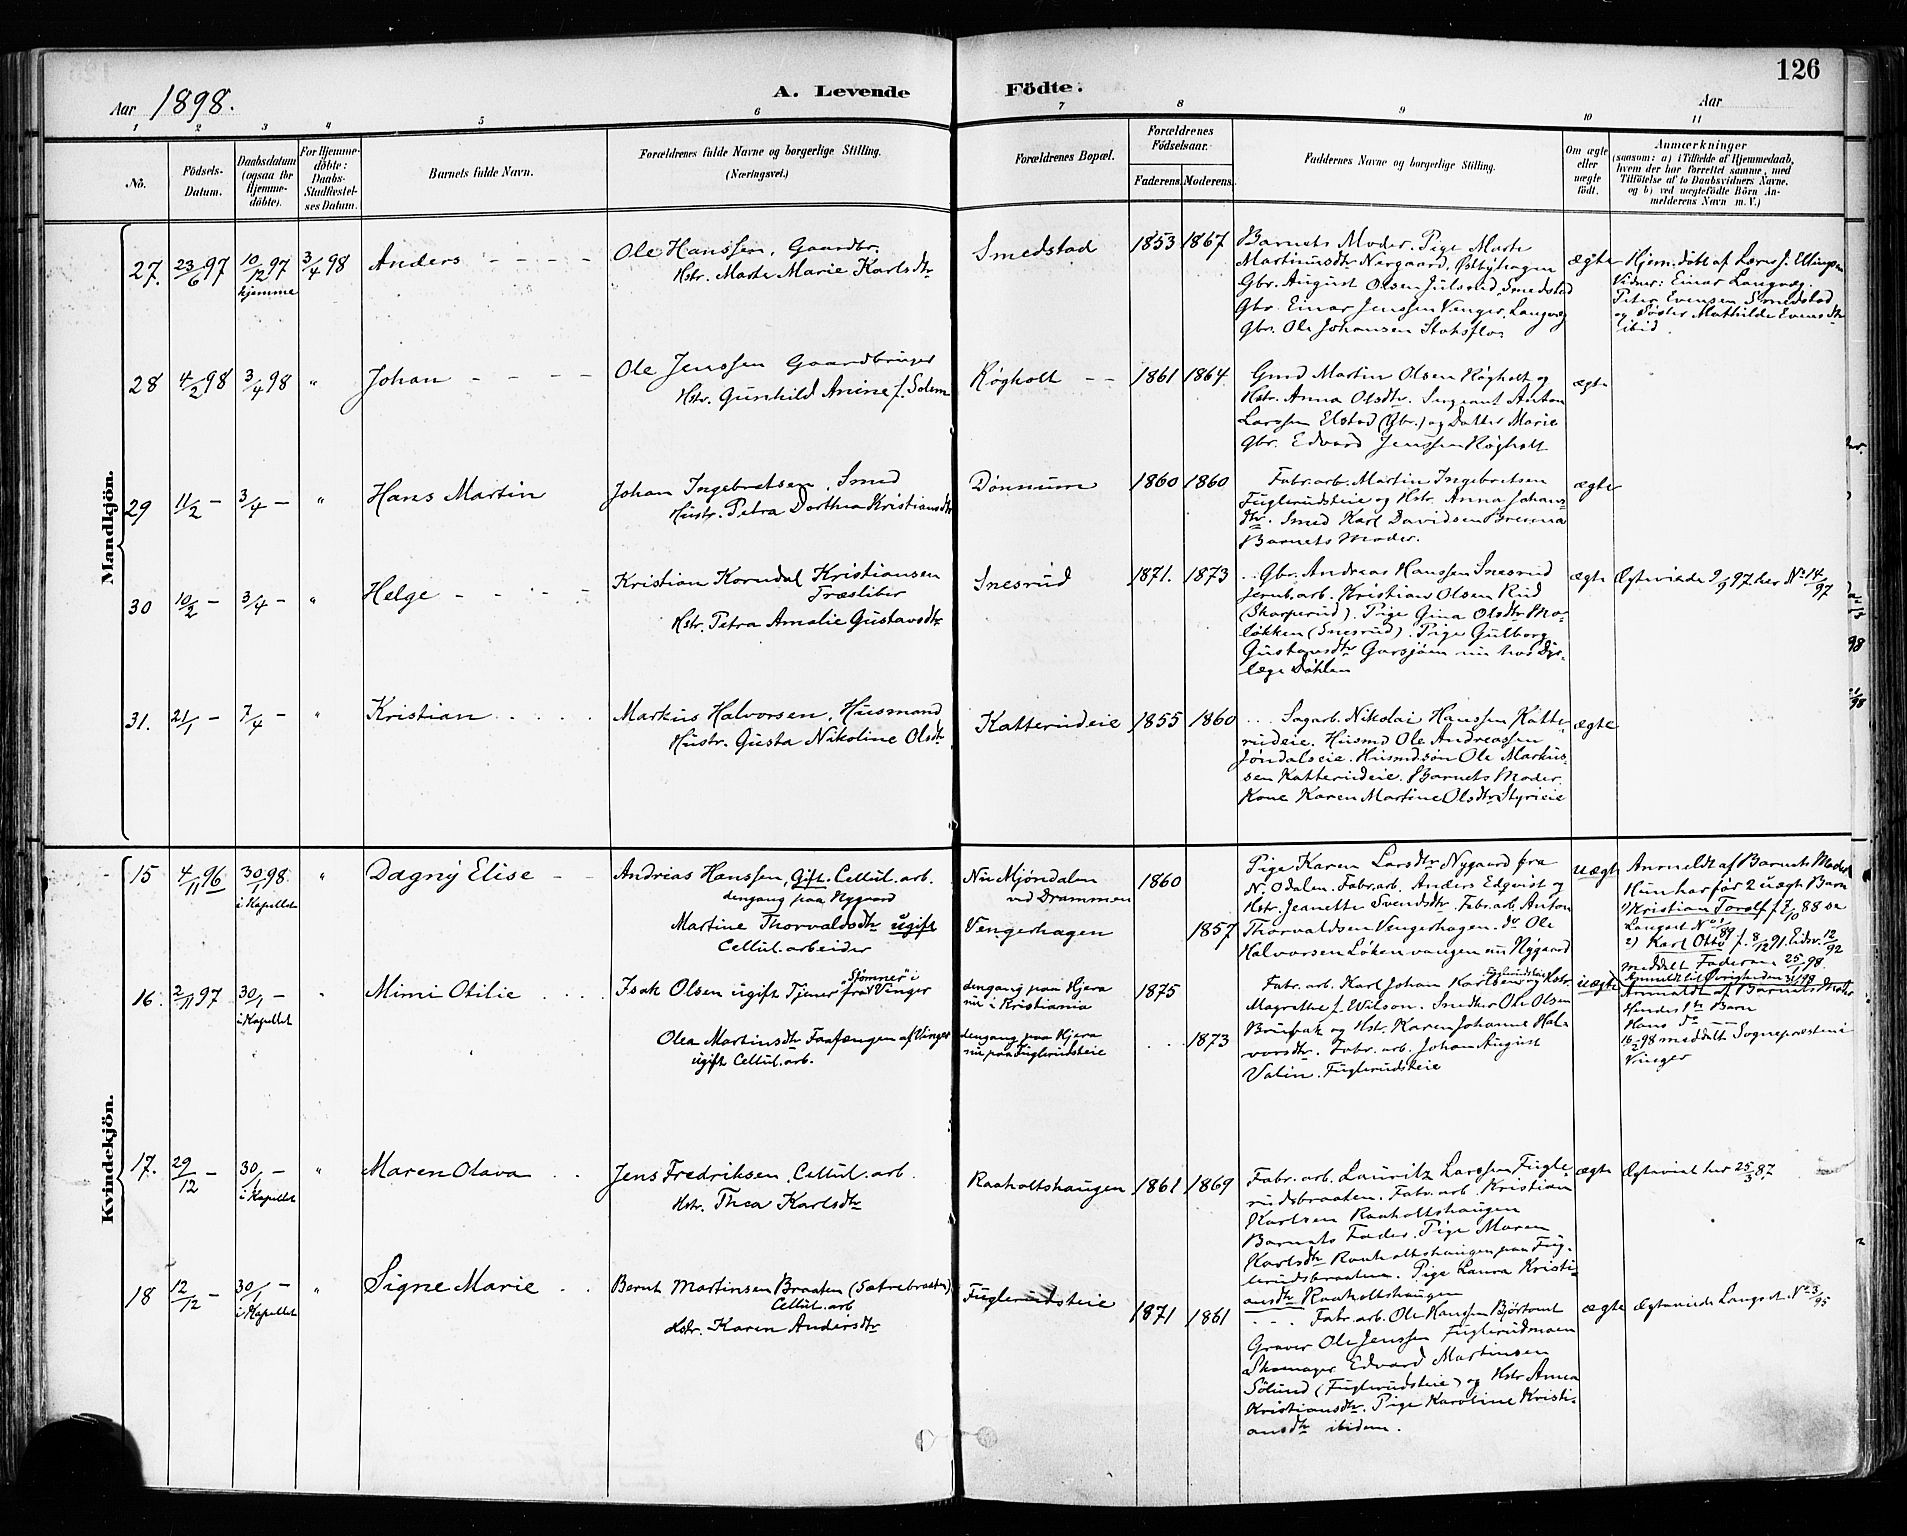 126
Aar 1898.
A. Levende Födte.
Aar
1 2 3 4 5 6 7 8 9 10 11
No.
Födsels-Datum.
Daabsdatum (ogsaa for Hjemme-döbte).
For Hjemme-döbte: Daabs-Stadfæstel-ses Datum.
Barnets fulde Navn.
Forældrenes fulde Navne og borgerlige Stilling.
(Næringsvei.)
Forældrenes Bopæl.
Forældrenes Födselsaar.
Faderens. Moderens.
Faddernes Navne og borgerlige Stilling.
Om ægte eller uægte födt.
Anmærkninger
(saasom: a) i Tilfælde af Hjemmedaab, hvem der har forrettet samme, med Tilföielse af to Daabsvidners Navne, og b) ved uægtefödte Börn Anmelderens Navn m. V.)
Mandkjön.
27. 23/6 97 10/12 97 hjemme 3/4 98 Anders
Ole Hanssen, Gaardbr.
Hstr. Marte Marie Karlsdtr
Smedstad 1853 1867
Barnets Moder. Pige Marte
Martinusdtr Nergaard, Østbyhagen
Gbr. August Olsen Julsrud, Smedstad
Gbr. Einar Jenssen Venger, Langveg
Gbr. Ole Johansen Stoksflos
ægte
Hjem. døbt af Lærer J. Ellingsen
Vidner: Einar Langveg.
Peter Evensen Smedstad
og Søster Mathilde Evensdtr
ibid.
28 4/2 98 3/4 98 " Johan
Ole Jenssen Gaardbruger
Hstr. Gunhild Anine f. Solem
Røgholt 1861 1864
Gmd Martin Olsen Røgholt og
Hstr. Anna Olsdtr. Sergeant Anton
Larssen Elstad (Gbr.) og Datter Marie
Gbr. Edvard Jenssen Røgholt
ægte
29 11/2 - 3/4 - " Hans Martin
Johan Ingebretsen, Smed
Hustr. Petra Dorthea Kristiansdtr
Dønnum 1860 1860
Fabr.arb. Martin Ingebretsen
Fuglerudsteie og Hstr. Anna Johans-
dtr. Smed Karl Davidsen
Barnets Moder.
ægte
30 10/2 - 3/4 - " Helge
Kristian Korndal Kristiansen
Træsliber
Hstr. Petra Amalie Gustavsdtr
Snesrud 1871. 1873
Gbr. Andreas Hanssen Snesrud
Jernb.arb. Kristian Olsen Rud
(Skarperud). Pige Gina Olsdtr Mo-
løkken (Snesrud). Pige Gulborg
Gustavsdtr Garsjøen nu hos Dyr-
læge Døhlen
ægte
Ægteviede 9/9 97 her No 14/97
31. 21/1 - 7/4 - " Kristian
Markus Halvorsen, Husmand
Hustr. Gusta Nikoline Olsdtr
Katterudeie 1855 1860
Sagarb. Nikolai Hanssen Katte-
rudeie. Husmd Ole Andreassen
Jøndalseie. Husmdsøn Ole Markus-
sen Katterudeie. Barnets Moder.
Kone Karen Martine Olsdtr Styrieie
ægte
Kvindekjön.
15 4/11 96 30/1 98. i Kapellet " Dagny Elise
Andreas Hanssen, Gift. Cellul. arb.
dengang paa Nygaard
Martine Thorvaldsdtr ugift
Cellul. arbeider
Nu Mjøndalen
ved Drammen 1860
Vengerhagen 1857
Pige Karen Larsdtr Nygaard fra
N. Odalen. Fabr.arb. Anders Edqvist og
Hstr. Jeanette Svendsdtr. Fabr.arb. Anton
Thorvaldsen Vengerhagen. do Ole
Halvorsen Løken vangen nu Nygaard
uægte
Anmeldt af Barnets Moder
Hun har før 2 uægt Barn
1) Kristian Torolf f. 7/10 88 se
Langset No 1/89
2) Karl Otto f. 8/12 91. Eidsv. 12/92
meddelt Faderen 25/1 98.
Anmeldt til Øvrigheden 31/1 98
16. 2/11 97 30/1 - i Kapellet " Mimi Otilie
Isak Olsen ugift Tjener fra "Sjømner" i Vinger
Olea Martinsdtr Faafængen af Vinger
ugift Cellul. arb.
dengang paa Hjera
nu i Kristiania 1875
dengang paa Hjera
nu paa Fuglerudsteie 1873
Fabr. arb. Karl Johan Karlsen Fuglerudsteie og Hstr
Magrethe f. Wilson. Snedker Ole Olsen
Brufak og Hstr. Karen Johanne Hal-
vorsdtr. Fabr. arb. Johan August
Valin. Fuglerudsteie
uægte
Anmeldt af Barnets Moder
Hendes 1ste Barn
Hans do
16/2 98 meddelt Sognepræsten i
Vinger
17. 29/12 - 30/1 - i Kapellet " Maren Olava
Jens Fredriksen, Cellul. arb.
Hstr. Thea Karlsdtr
Raaholtshaugen 1861 1869
Fabr. arb. Lauritz Larssen Fugle-
rudsbraaten. Fabr. arb. Kristian
Karlsen Raaholtshaugen
Barnets Fader. Pige Maren
Karlsdtr Raaholtshaugen paa Fug-
lerudsbraaten. Pige Laura Kristi-
ansdtr Raaholtshaugen
ægte
Ægteviet her 25/3 87
18 12/12 - 30/1 - i Kapellet " Signe Marie
Bernt Martinsen Braaten (Sætrebraaten)
Cellul. arb
Hstr. Karen Andersdtr
Fuglerudsteie 1871 1861
Fabr. arb. Ole Hanssen Bjørtomt
Graver Ole Jenssen Fuglerudmoen
Skomager Edvard Martinsen
Sølund (Fuglerudsteie) og Hstr Anna
Kristiansdtr. Pige Karoline Kristi-
ansdtr ibidem.
ægte
Ægteviede Langset No 3/95